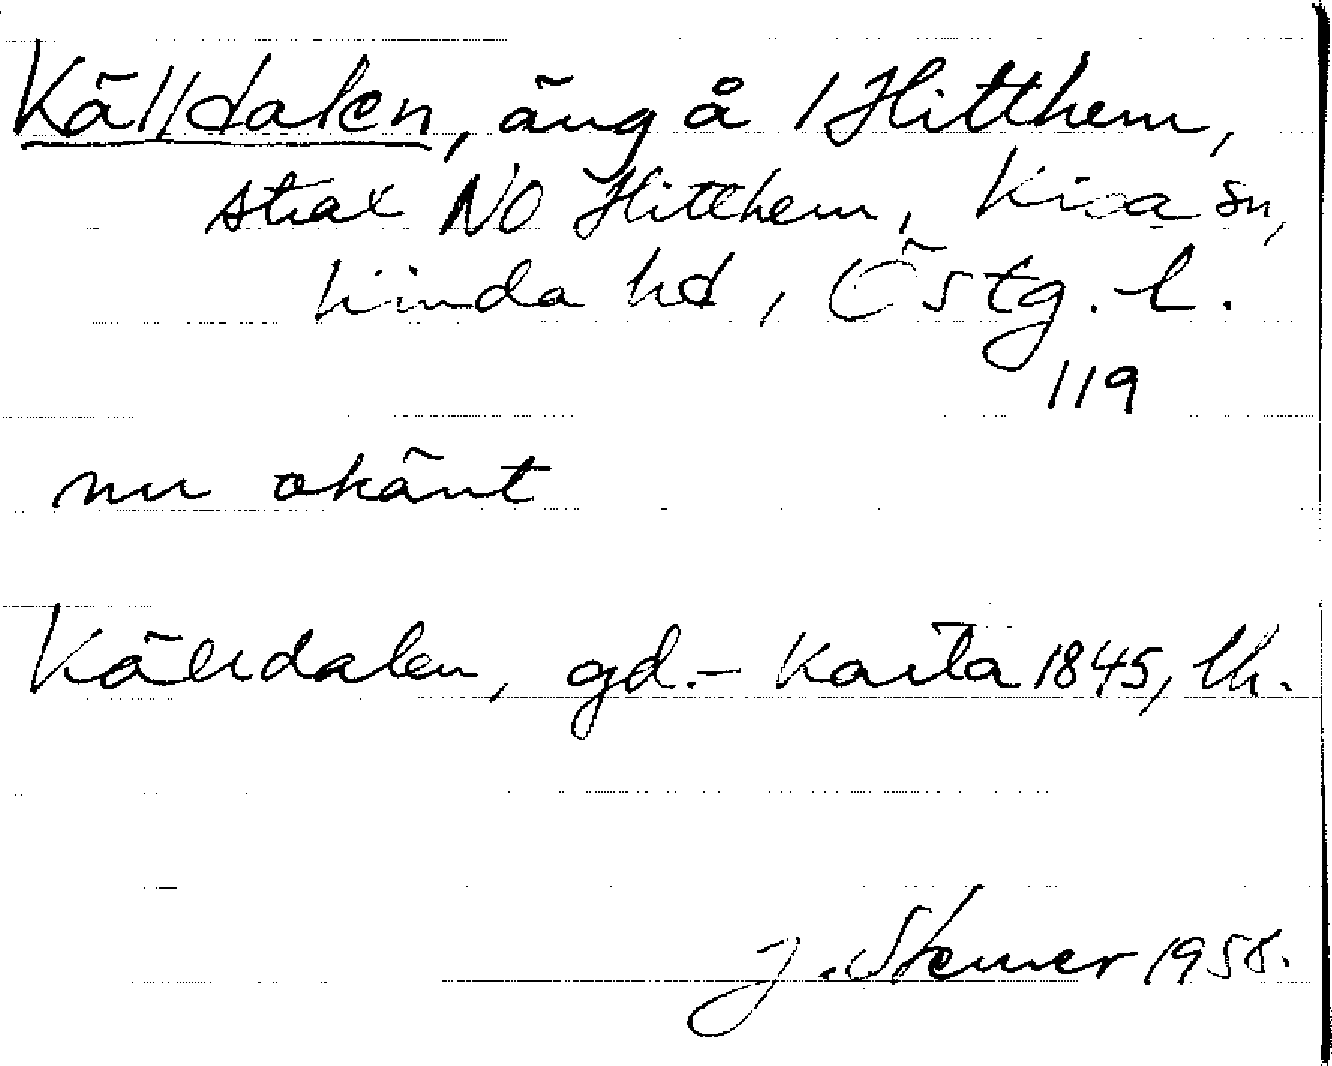 Källdalen, äng å 1 Hitthem,
strax NO Hitthem, Kisa sn,
Kinda hd, Östg. l.
119
nu okänt
Källdalen, gd.- karta 1845, lh.
J. Stemer 1958.